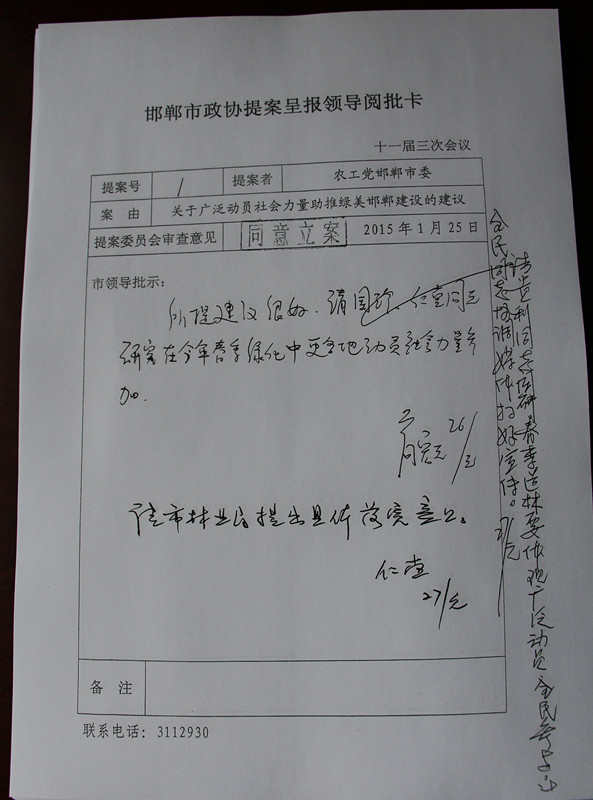 邯郸市政协提案呈报领导阅批卡
十一届三次会议
提案号 1 提案者 农工党邯郸市委
案 由 关于广泛动员社会力量助推绿美邯郸建设的建议
提案委员会审查意见 同意立案 2015年1月25日
市领导批示:
所提建议很好.请国 、仁 同志
研究在今年春季绿化中更多地动员社会力量参
加.
26/元
请市林业局提出具体落实意见。
仁
27/元
请 利同志 春季造林要体现广泛动员全民参与
全民 同志协调媒体搞好宣传。
备 注
联系电话: 3112930